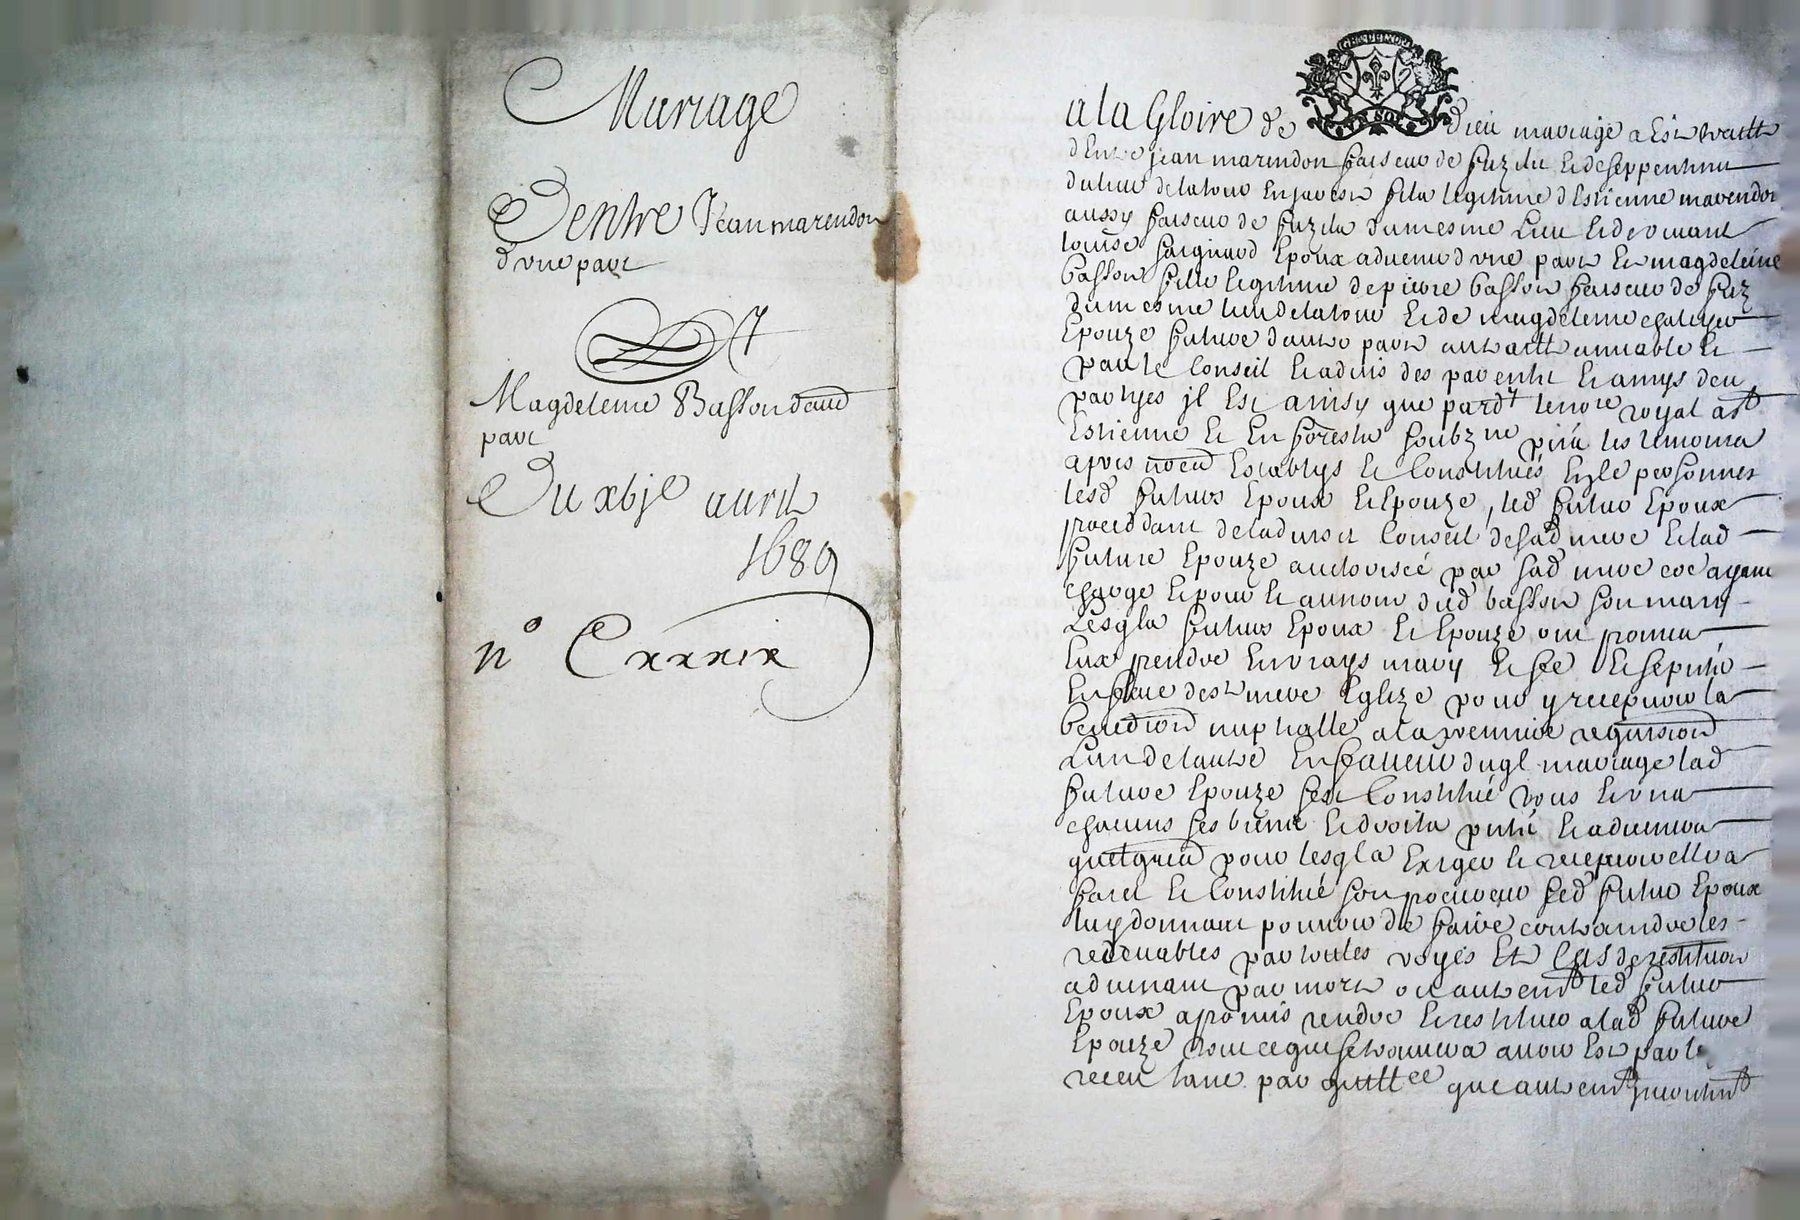 Mariage
Dentre Jean marendon
d'vne part
Et
Magdeleine Basson daud
part
Du xbje auril
1689
n° Cxxxix
GEN DE LYON
VN SOL
a la Gloire de dieu mariage a Est traitté
d Entre jean marendon faiseur de fuzils et de serpentine
du lieu de la tour en jarest fils legitime d'Estienne marendon
aussy faiseur de fuzils du mesme lieu et de viuant
louise Epoux aduenir d'vne part et magdeleine
basson fille legitime de pierre basson faiseur de fuz
du mesme lieu de la tour et de magdeleine
Epouze future d'autre part au traitté amiable et
par le Conseil et aduis des parentz et amys des
partyes jl Est ainsy que pard.t le no.re royal a s.t
Estienne et en forestz soubz.ne p.ntz les temoins
apres no.es Establys et Constitués en le personnes
lesd. futurs Epoux et Epouze, led. futur Epoux
proceddant de laduis et Conseil de sad. mere et lad.
future Epouze authorisée par sad. mere co.e ayant
charge et pour et au nom dud. basson son mary
Lesq.ls futurs Epoux et Epouze ont promis
Eux prendre En vrays mary et fe.e et se p.nter
En face de s.te mere Eglize pour y recepuoir la
benediction nuptialle a la premiere requisition
L'un de l'autre En faueur duq.l mariage lad.
future Epouze sest Constitué tous et vns
chacuns ses biens et droits p.ntz et aduenir
quelq. pour lesq.ls Exiger et recepuoir ellea
faict et Constitué son procureur led. futur Epoux
luy donnant pouuoir de faire contraindre les
redeuables par toutes voyes Et Cas de restitution
aduenant par mort ou autrem.t led. futur
Epoux a promis rendre et restituer a lad. future
Epouze tout ce qui se trouuera auoir Est par l
receu tant par quitt.ce que autrem.t